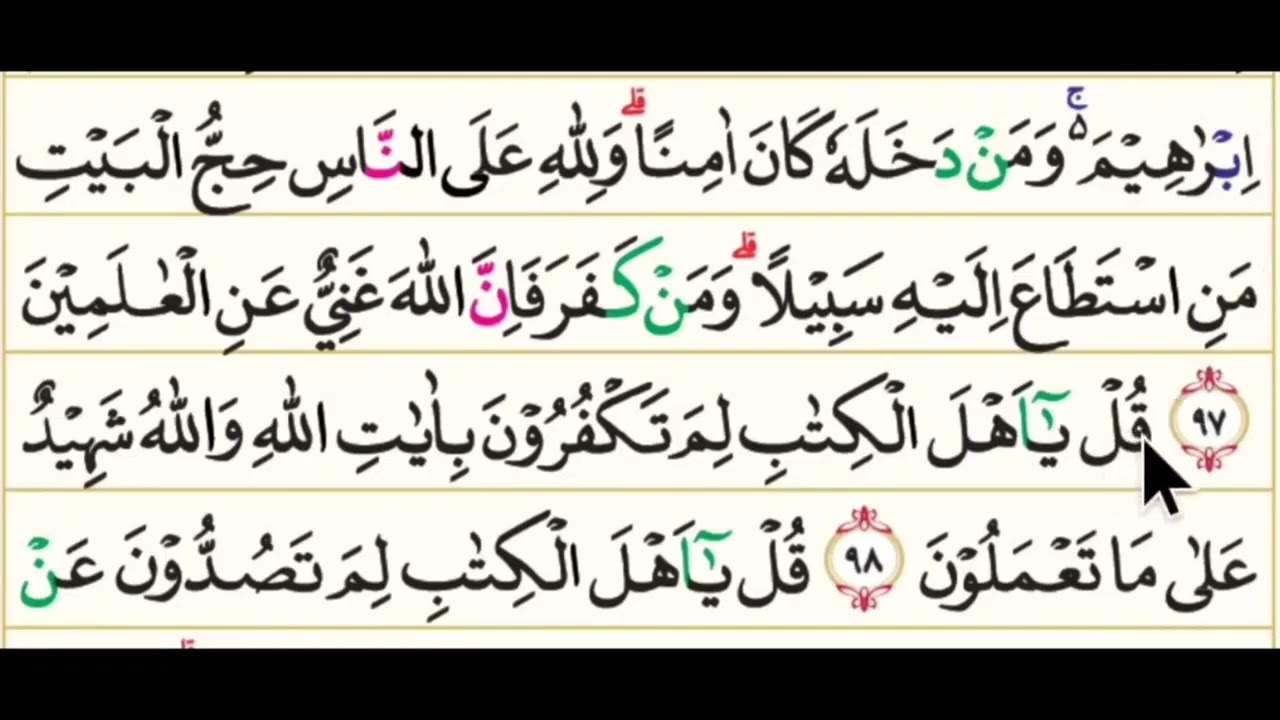 اِبْرٰهِيْمَ ۵ۚ وَمَنْ دَخَلَهٗ كَانَ اٰمِنًا ؕ وَلِلّٰهِ عَلَى النَّاسِ حِجُّ الْبَيْتِ
مَنِ اسْتَطَاعَ اِلَيْهِ سَبِيْلًا ؕ وَمَنْ كَفَرَ فَاِنَّ اللّٰهَ غَنِيٌّ عَنِ الْعٰلَمِيْنَ
۹۷ قُلْ يٰۤاَهْلَ الْكِتٰبِ لِمَ تَكْفُرُوْنَ بِاٰيٰتِ اللّٰهِ وَاللّٰهُ شَهِيْدٌ
عَلٰى مَا تَعْمَلُوْنَ ۹۸ قُلْ يٰۤاَهْلَ الْكِتٰبِ لِمَ تَصُدُّوْنَ عَنْ